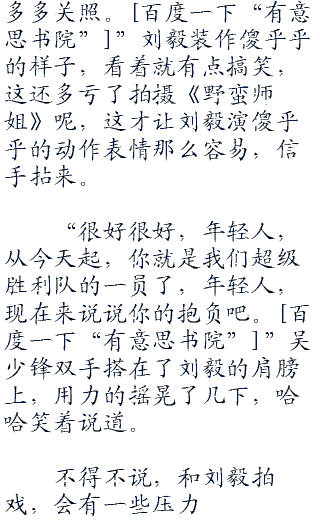 多多关照。[百度一下“有意
思书院”]”刘毅装作傻乎乎
的样子，看着就有点搞笑，
这还多亏了拍摄《野蛮师
姐》呢，这才让刘毅演傻乎
乎的动作表情那么容易，信
手拈来。
“很好很好，年轻人，
从今天起，你就是我们超级
胜利队的一员了，年轻人，
现在来说说你的抱负吧。[百
度一下“有意思书院”]”吴
少锋双手搭在了刘毅的肩膀
上，用力的摇晃了几下，哈
哈笑着说道。
不得不说，和刘毅拍
戏，会有一些压力